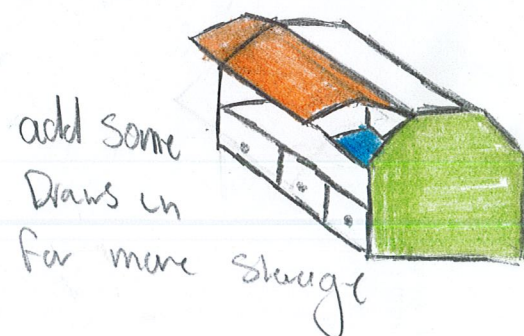 add some
Draws in
for more storage